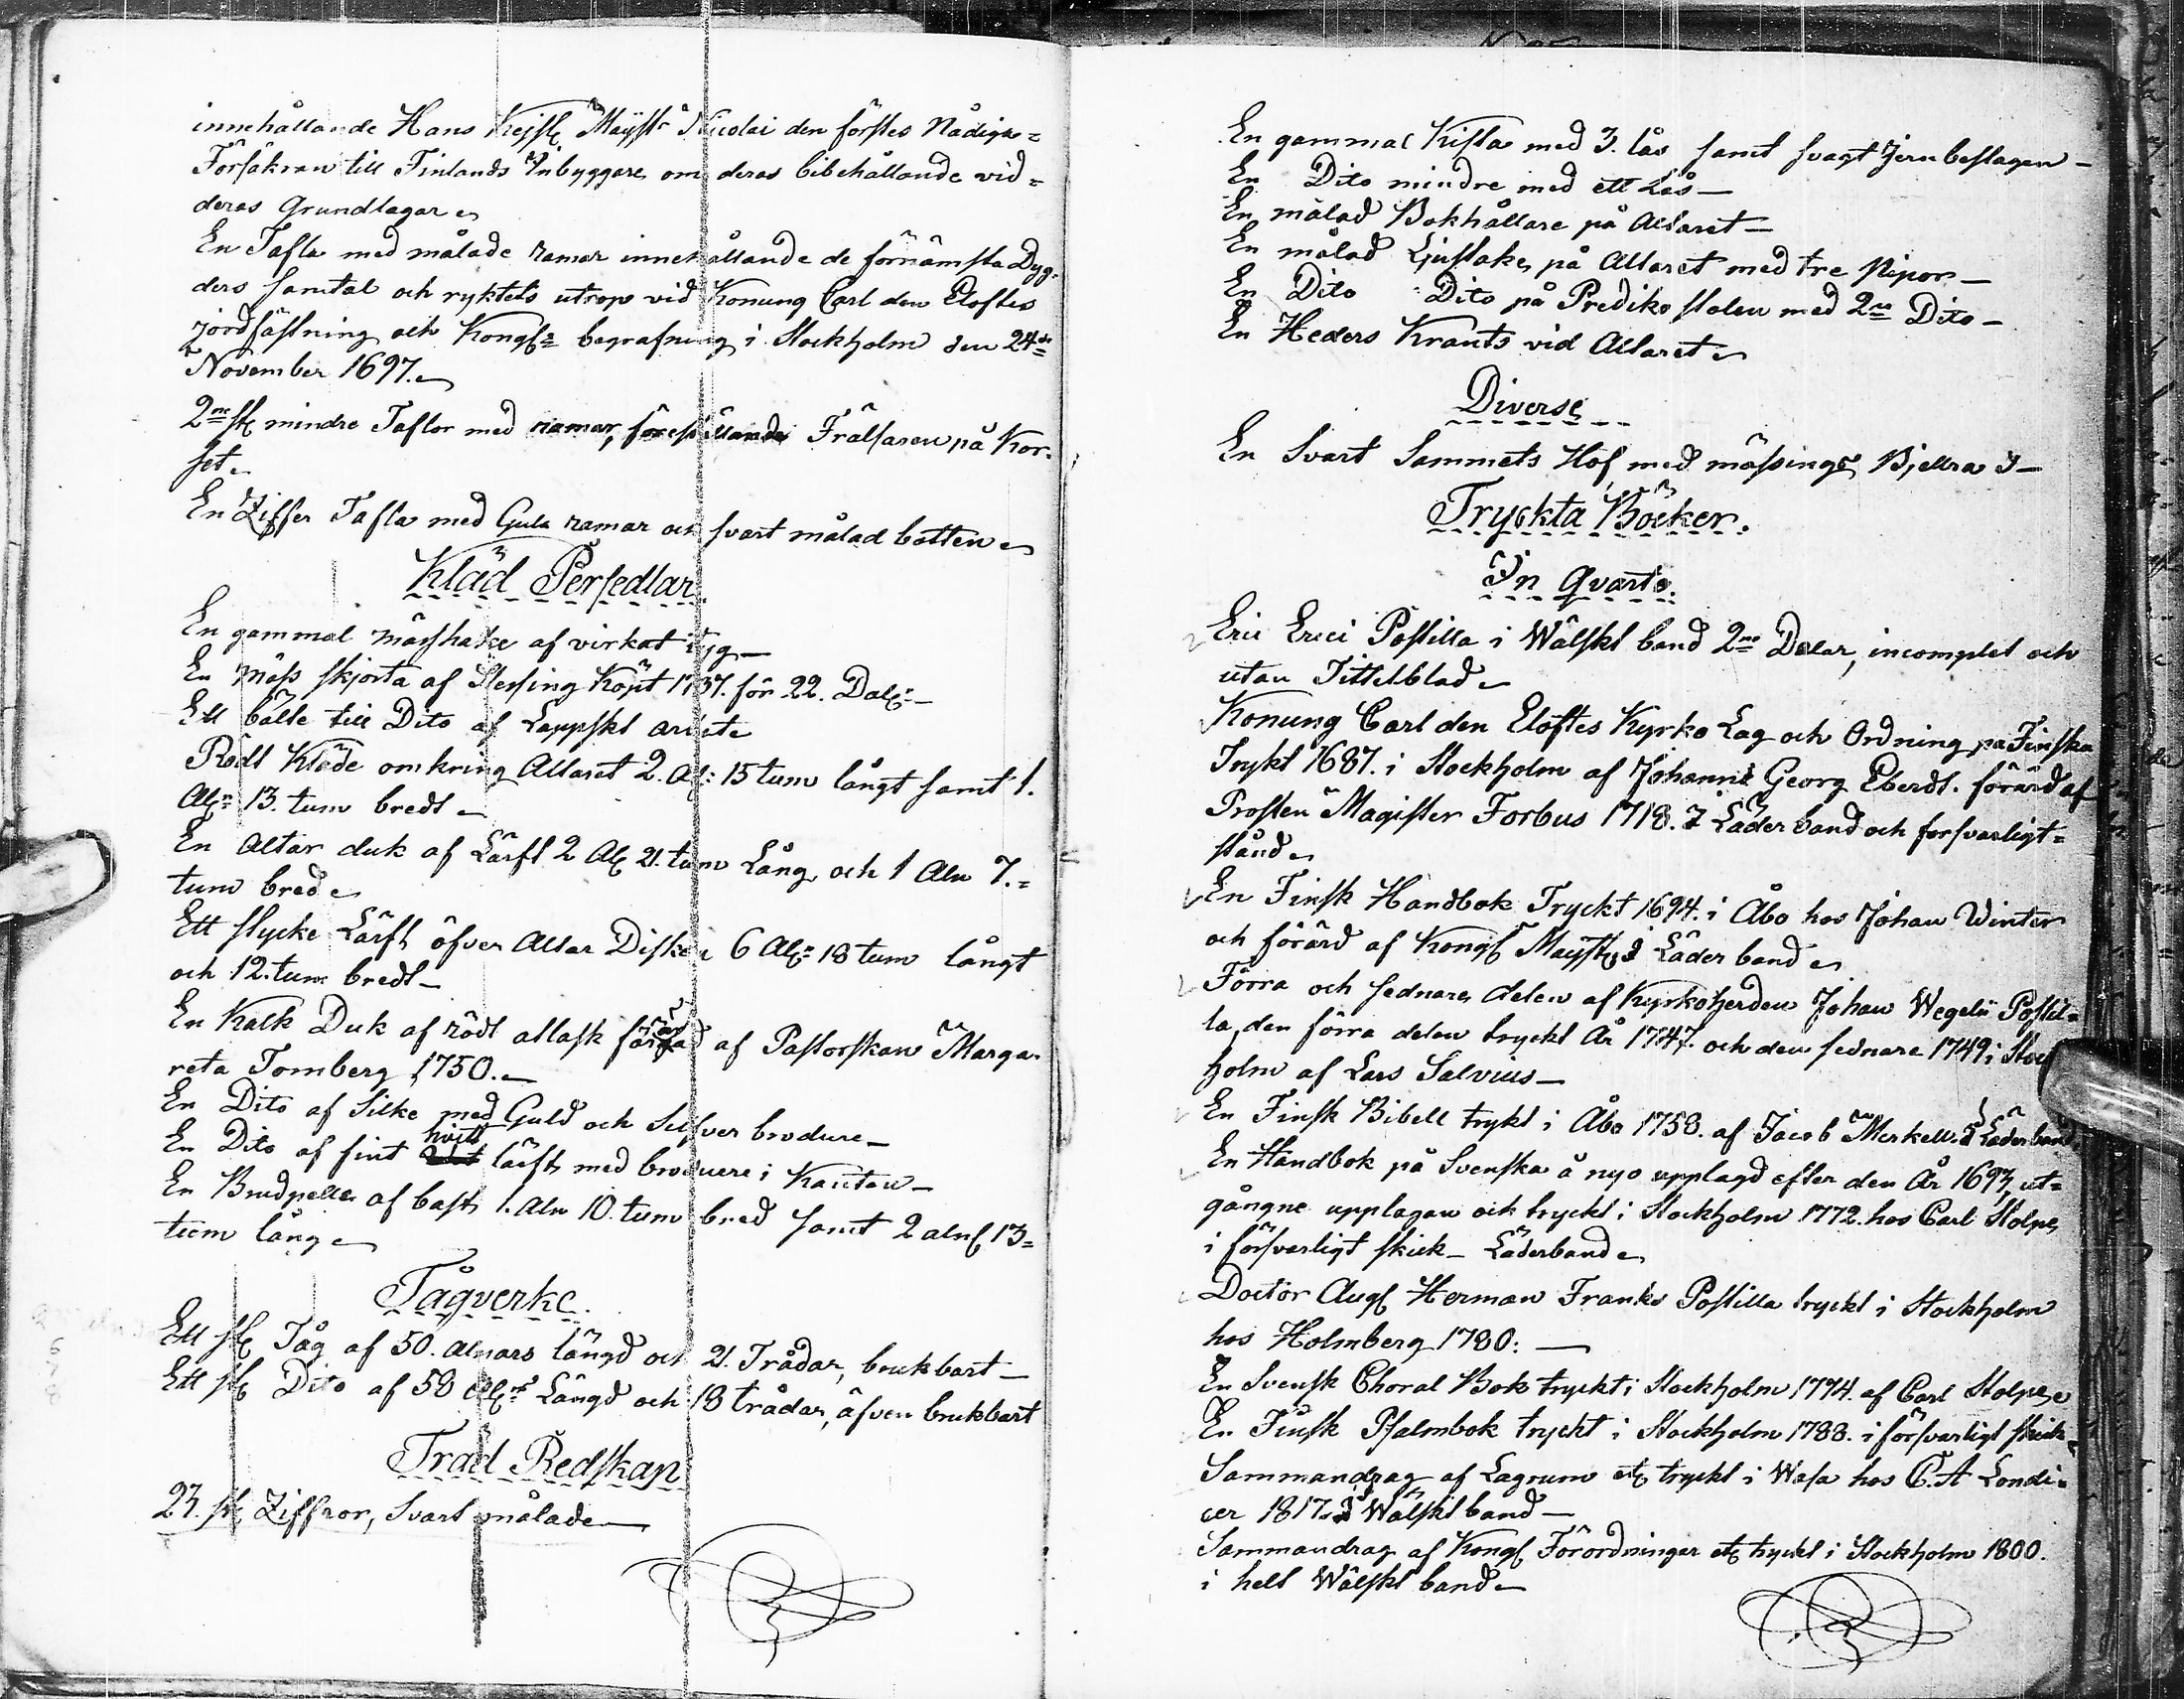 innehållande Hans Kejsl Mayst:s Nicolai den förstes Nådiga=
Försäkran till Finlands Inbyggare, om deras bibehållande vid=
deras Grundlagar
En Tafla med målade ramar innehållande de förnämsta Dyg=
ders samtal och ryktets utrop vid Konung Carl den Eloftes
jordfästning och Kongl: begrafning i Stockholm den 24de
November 1697.
2ne st mindre Taflor med ramar, föreställande Frälsaren på Kor=
set
En Ziffer Tafla med Gula ramar och svart målad botten
Kläd Persedlar.
En gammal mässhake af virkat tyg —
En mäss skjorta af Slesing Köpt 1737. för 22. Dal: —
Ett bälte till Dito af Lappskt arbete
Rödt Kläde omkring Altaret 2. Al: 15 tum långt samt 1.
Aln: 13. tum bredt
En Altar duk af Lärft 2 Al 21. tum Lång, och 1 Aln 7.=
tum bred
Ett stycke Lärft öfver Altar Disken 6 Al: 18 tum långt
och 12. tum bredt —
En Kalk Duk af rödt atlask förärad af Pastorskan Marga=
reta Tornberg 1750. —
En Dito af Silke med Guld och Silfver brodure —
hvitt
En Dito af fint lärft med brodure i Kanten —
En Brudpelle af bast 1. Aln 10. tum bred samt 2 aln 13=
tum lång
Tågverke.
Ett st Tåg af 50. alnars längd och 21. Trådar, brukbart —
Ett st Dito af 58 Alns Längd och 18 trådar, äfven brukbart
Träd Redskap
23. st Ziffror, Svart målade —
En gammal Kista med 3. lås samt svagt Jern beslagen —
En Dito mindre med ett Lås —
En målad Bokhållare på Altaret —
En målad Ljustake, på Altaret med tre Pipor —
En Dito Dito på Predikostolen med 2ne Dito —
En Heders Krants vid Altaret
Diverse
En Svart Sammets Hof med mässings Bjellra i —
Tryckta Böcker.
In Qvarto.
Eric Erici Postilla i Wälskt band 2ne Delar, incomplet och
utan Tittelblad
Konung Carl den Eloftes Kyrko Lag och Ordning på Finska
Trykt 1687. i Stockholm af Johann Georg Eberdt. förärd af
Prosten Magister Forbus 1718. I Läder band och forsvarligt=
stånd
En Finsk Handbok Tryckt 1694. i Åbo hos Johan Winter
och förärd af Kongl Mayst, i Läder band
Förra och sednare delen af Kyrkoherden Johan Wegelii Postil=
la, den förra delen tryckt År 1747. och den sednare 1749 i Stock
holm af Lars Salvius —
En Finsk Bibell trykt i Åbo 1758. af Jacob Merkell. i Läderband.
En Handbok på Svenska å nyo upplagd efter den År 1693, ut=
gångne upplagan och tryckt i Stockholm 1772. hos Carl Stolpe,
i försvarligt skick — Läderband
Doctor Aug Herman Franks Postilla tryckt i Stockholm
hos Holmberg 1780: —
En Svensk Choral Bok tryckt i Stockholm 1774. af Carl Stolpe,
En Finsk Psalmbok tryckt i Stockholm 1788. i försvarligt skick
Sammandrag af Lagrum etc tryckt i Wasa hos C. A Londi=
cer 1817. i Wälskt band —
Sammandrag af Kongl Förordningar etc tryckt i Stockholm 1800.
i helt Wälskt band